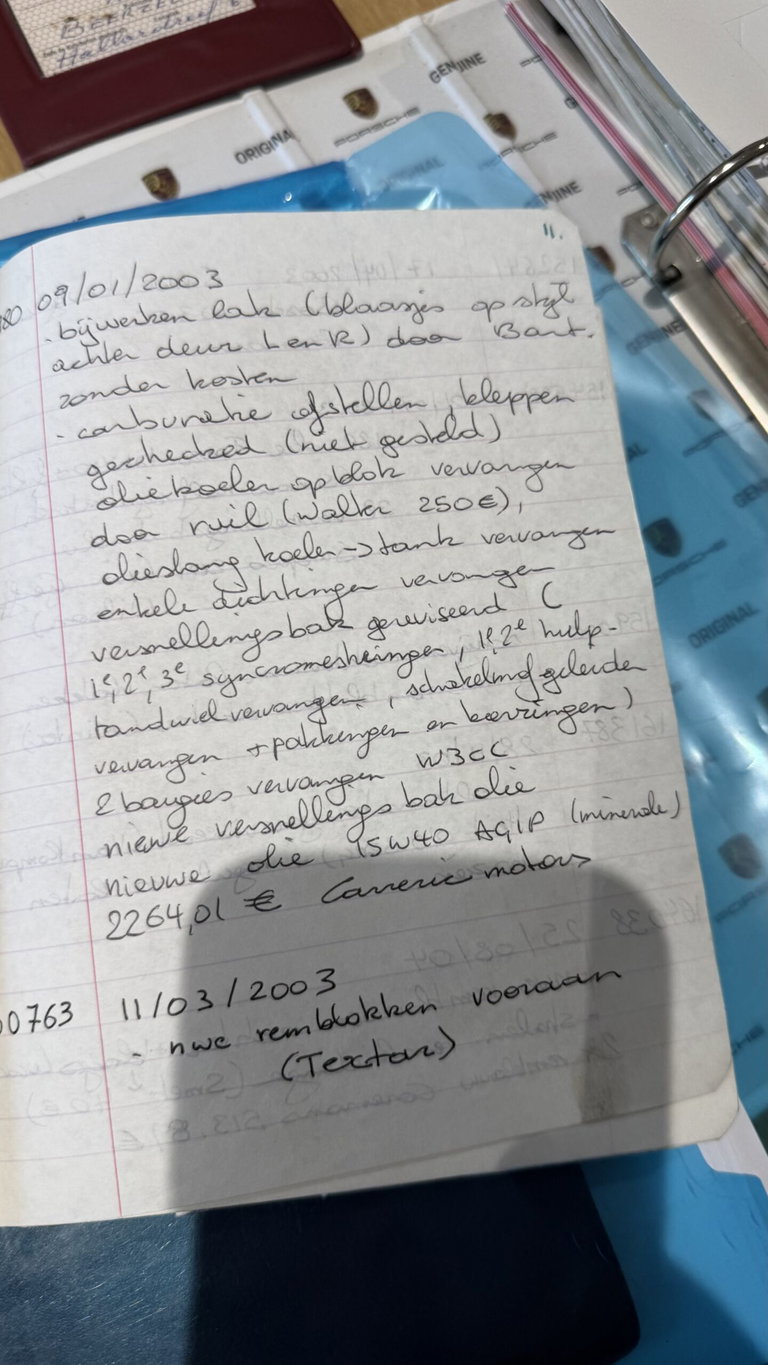 ORIGINAL
GENUINE
PORSCHE
11.
80 09/01/2003
- bijwerken lak (blaasjes op stijl
achter deur L en R) door Bart.
zonder kosten
- carburatie afstellen, kleppen
gechecked (niet gesteld)
oliekoeler op blok vervangen
door ruil (Walter 250€),
olieslang koeler -> tank vervangen
enkele dichtingen vervangen
versnellingsbak gereviseerd (
1e, 2e, 3e syncromesheringen, 1e, 2e hulp-
tandwiel vervangen, schakelingsgeleider
vervangen + pakkingen en keerringen)
2 baugies vervangen W3CC
niewe versnellingsbak olie
nieuwe olie 15W40 AGIP (minerale)
2264,01 € Carreric motors
00763 11/03/2003
- nwe remblokken vooraan
(Textar)